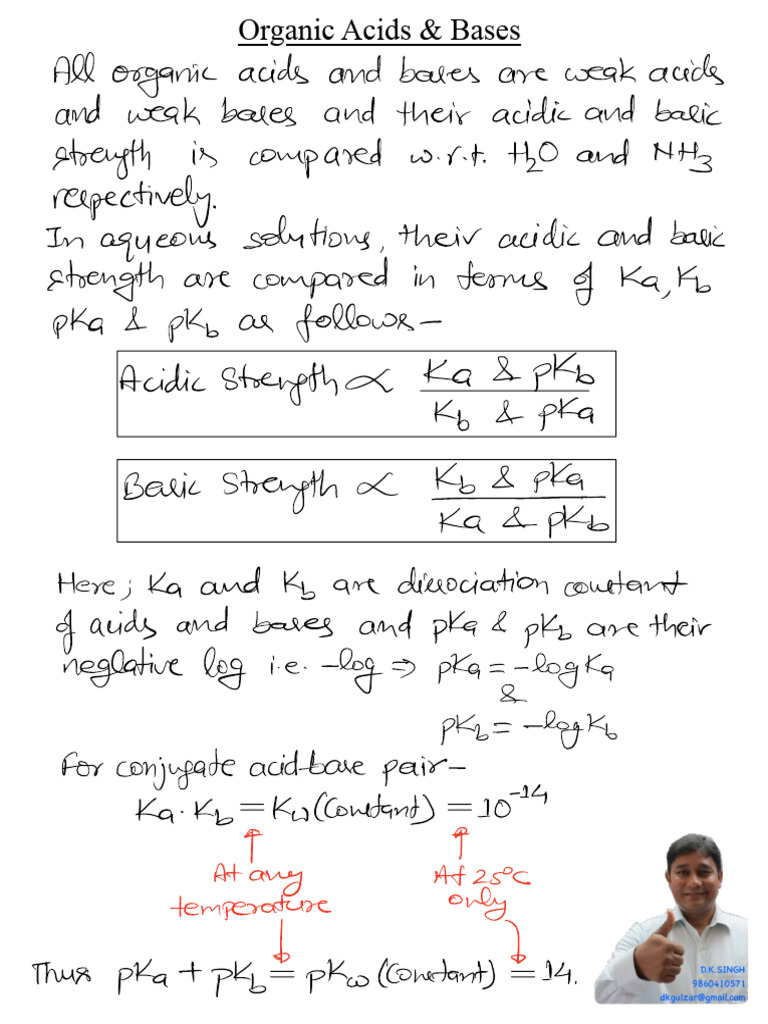 Organic Acids & Bases
All organic acids and bases are weak acids
and weak bases and their acidic and basic
strength is compared w.r.t. H₂O and NH₃
respectively.
In aqueous solutions, their acidic and basic
strength are compared in terms of Ka, Kb
pKa & pKb as follows-
Acidic Strength ∝ Ka & pKb
Kb & pKa
Basic Strength ∝ Kb & pKa
Ka & pKb
Here; Ka and Kb are dissociation constant
of acids and bases and pKa & pKb are their
neglative log i.e. -log ⇒ pKa = -logKa
&
pKb = -logKb
For conjugate acid-base pair-
Ka.Kb = Kw (Constant) = 10⁻¹⁴
At any At 25°C
temperature only
Thus pKa + pKb = pKw (Constant) = 14.
D.K.SINGH
9860410571
dkgulzar@gmail.com